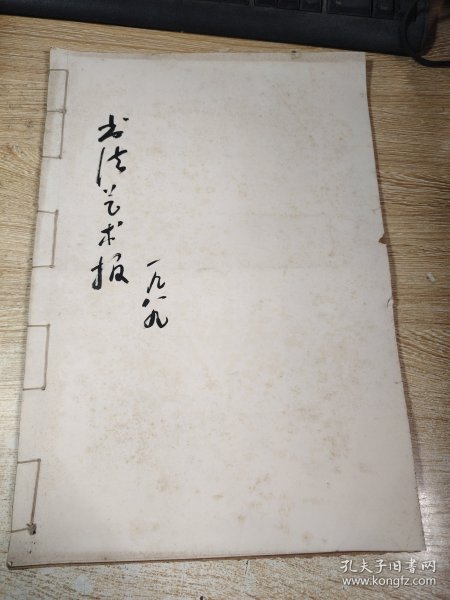 书法艺术报
一九八九
孔夫子旧书网
www.kongfz.com